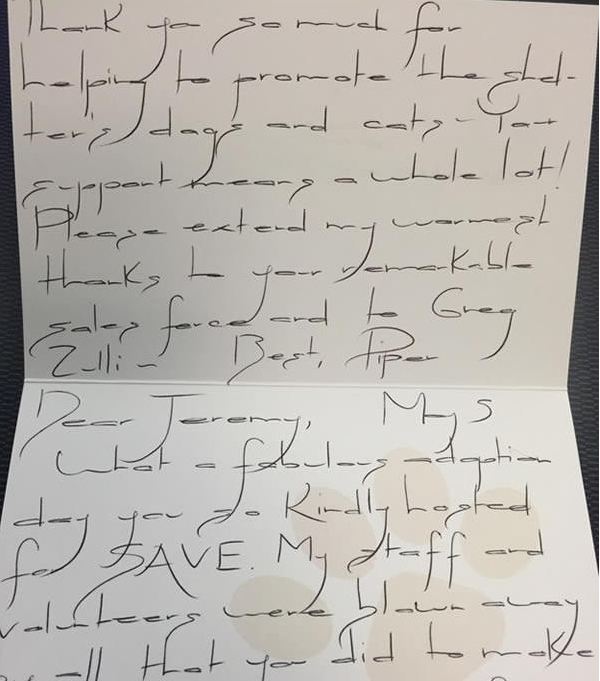 Thank you so much for
helping to promote the shel-
ter's dogs and cats - Your
support means a whole lot!
Please extend my warmest
thanks to your remarkable
sales force and to Greg
Zulli - Best, Piper
Dear Jeremy, May 5
What a fabulous adoption
day you so kindly hosted
for SAVE. My staff and
volunteers were blown away
by all that you did to make